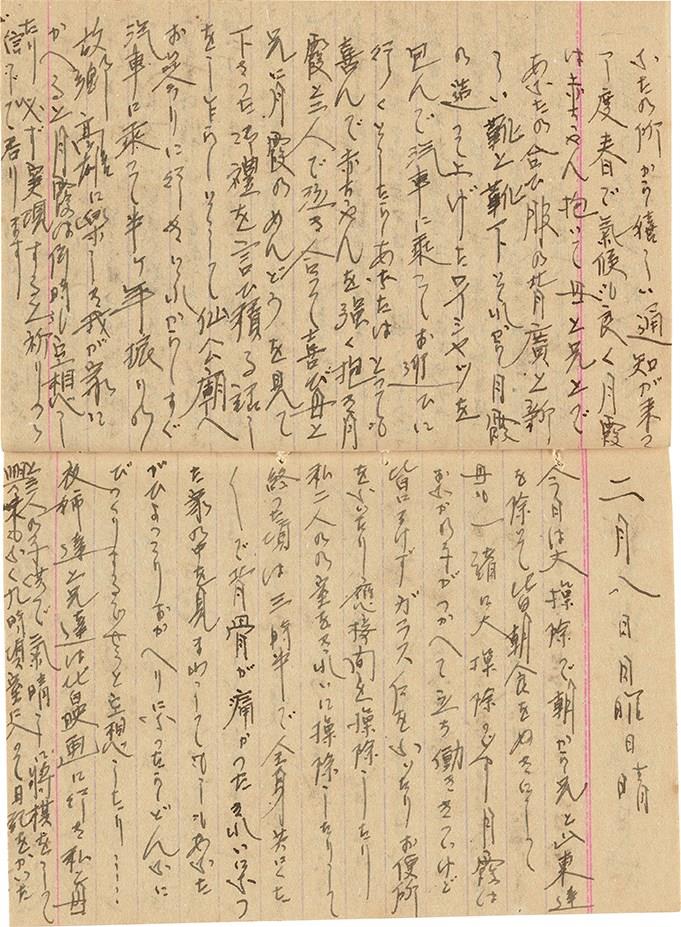 あなたの所から嬉しい通知が来て
丁度春で氣候も良く月霞
は赤ちゃん抱いて母と兄とで
あなたの合ひ服の背廣と新
しい靴と靴下それから月霞
の造って上げたワイシャツを
包んで汽車に乗ってお迎ひに
行くとしたらあなたはとっても
喜んで赤ちゃんを強く抱き月
霞と二人で泣き合って喜び母と
兄に月霞のめんどうを見て
下さった御禮を言ひ積る話し
をし それから仙公廟へ
お參りに行きそれからすぐ
汽車に乗って半ケ年振りの
故郷高雄に樂しき我が家に
かへると月霞は何時も空想し
たり必ず実現すると祈りつゝ
信じて居ります
二月八日日曜日晴
今日は大掃除で朝から兄と山東達
を除いて皆朝食をぬきにして
母も一緒に大掃除です 月霞は
おなかの子がつかへて立ち働ききついけど
皆にまけずガラス石をふいたりお便所
をふいたり應接間を掃除したり
私二人の室をきれいに掃除したりして
終った頃は三時半で全身共にくた
くしで背骨が痛かった きれいになっ
た家の中を見まわってもしもあなた
がひょっこりおかへりになったらどんなに
びっくりするでせうと空想したり‥‥
夜姉達と兄達は皆映画に行き私と母
と三人の子供で氣晴しに將棋をして
興味なく九時頃室に入って日記をかいた